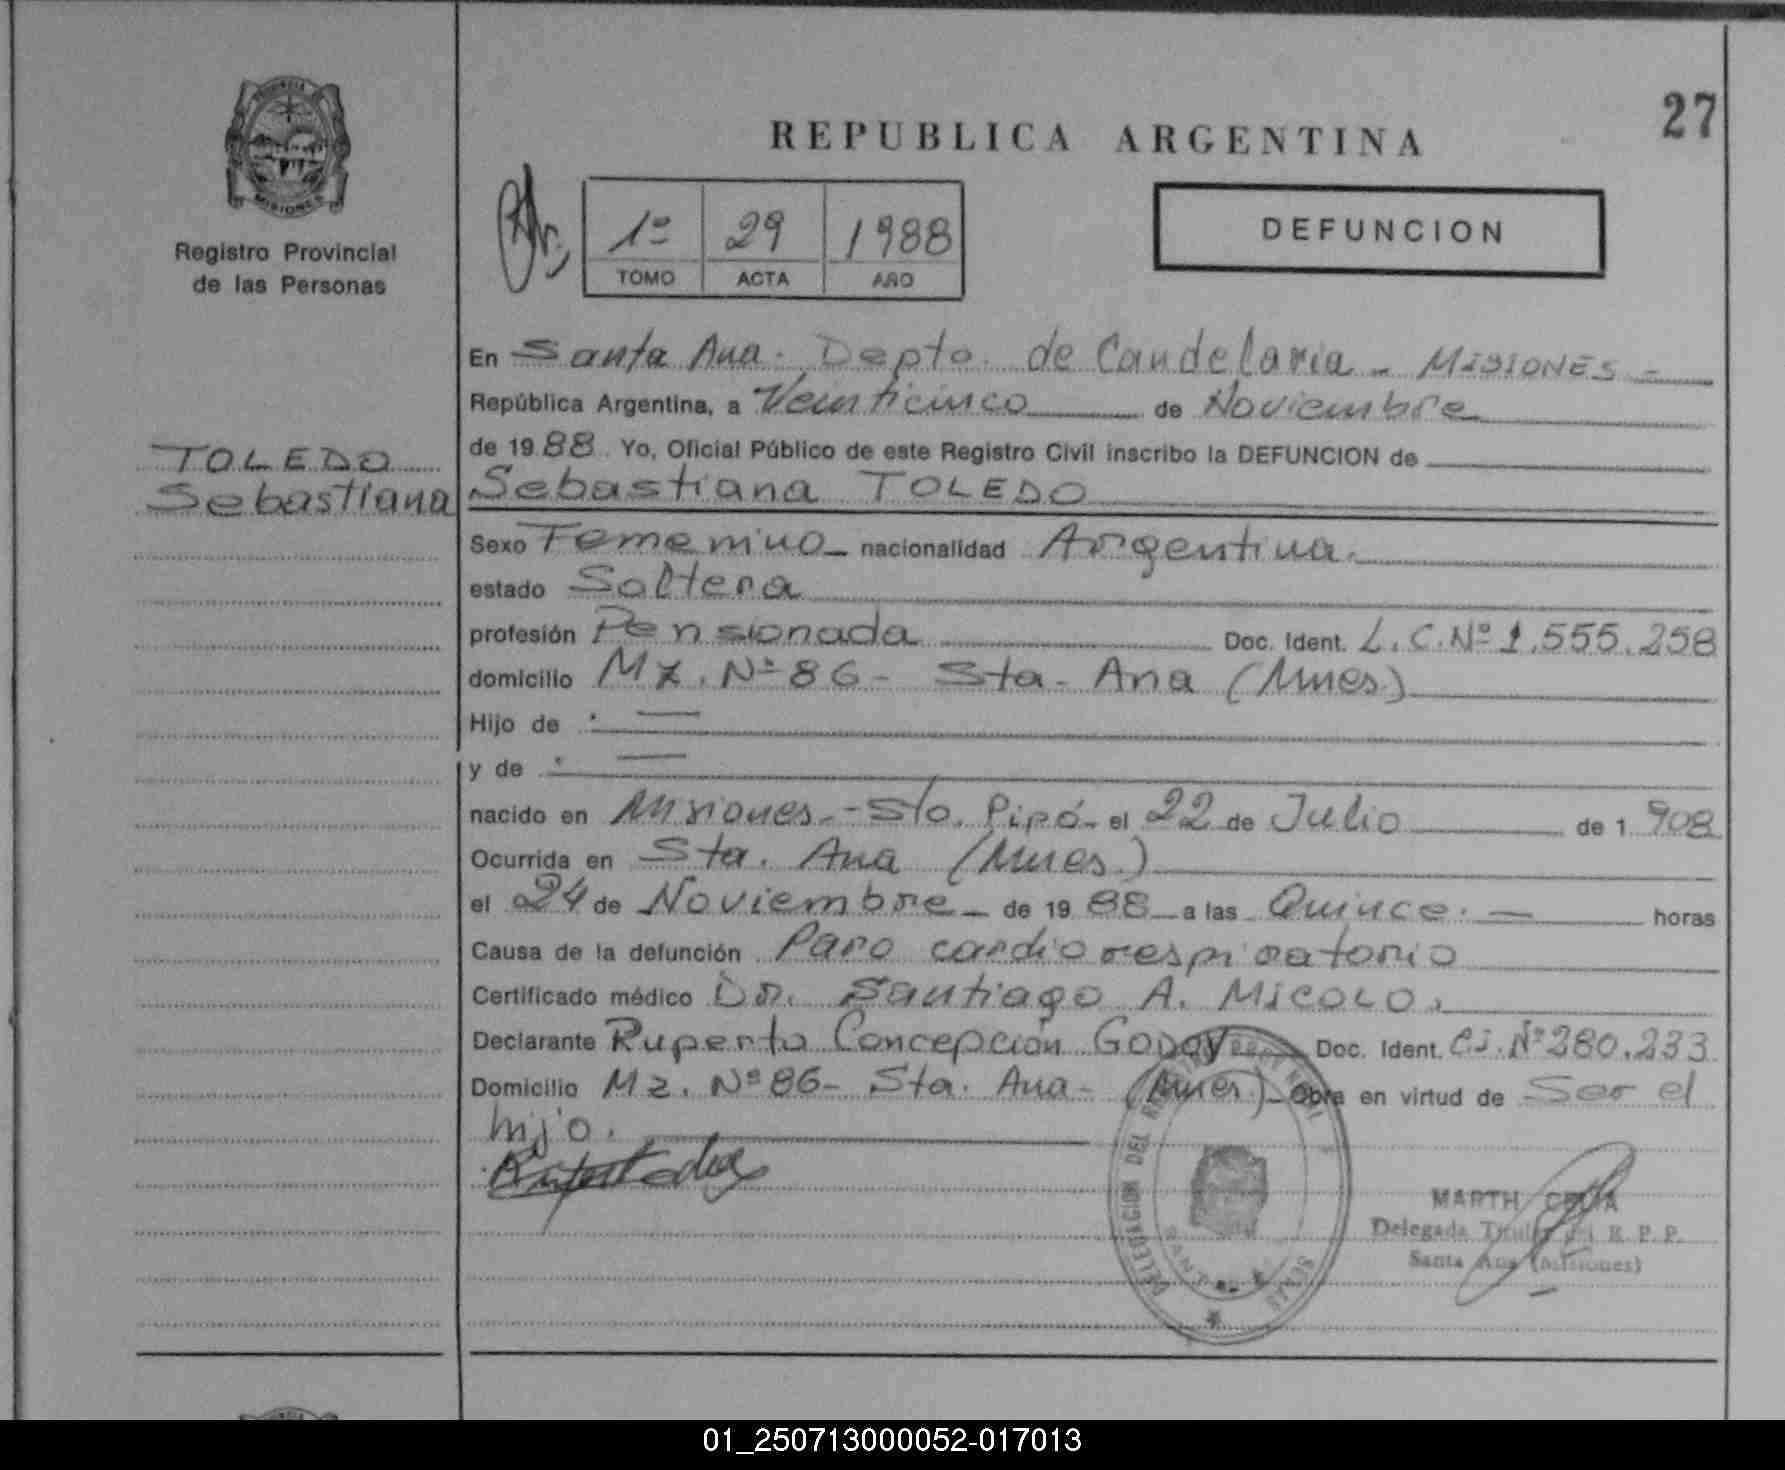 27
REPUBLICA ARGENTINA
PROVINCIA
MISIONES
Registro Provincial
de las Personas
1º 29 1988
TOMO ACTA AÑO
DEFUNCION
En Santa Ana. Depto. de Candelaria - MISIONES -
República Argentina, a Veinticinco de Noviembre
de 1988 Yo, Oficial Público de este Registro Civil inscribo la DEFUNCION de
TOLEDO
Sebastiana
Sebastiana TOLEDO
Sexo Femenino nacionalidad Argentina.
estado Soltera
profesión Pensionada Doc. Ident. L.C.Nº 1.555.258
domicilio Mz. Nº 86 - Sta. Ana (Mnes.)
Hijo de
y de
nacido en Misiones. - Sto. Pipó - el 22 de Julio de 1 908
Ocurrida en Sta. Ana (Mnes.)
el 24 de Noviembre - de 19 88 a las Quince. - horas
Causa de la defunción Paro cardiorespiratorio
Certificado médico Dr. Santiago A. MICOLO.
Declarante Ruperto Concepción GODOY Doc. Ident. CI. Nº 280.233
Domicilio Mz. Nº 86 - Sta. Ana - (Mnes) Obra en virtud de Ser el
hijo.
DELEGACION DEL
MARTH CELIA
Delegada Titular del R. P. P.
Santa Ana (Misiones)
01_250713000052-017013